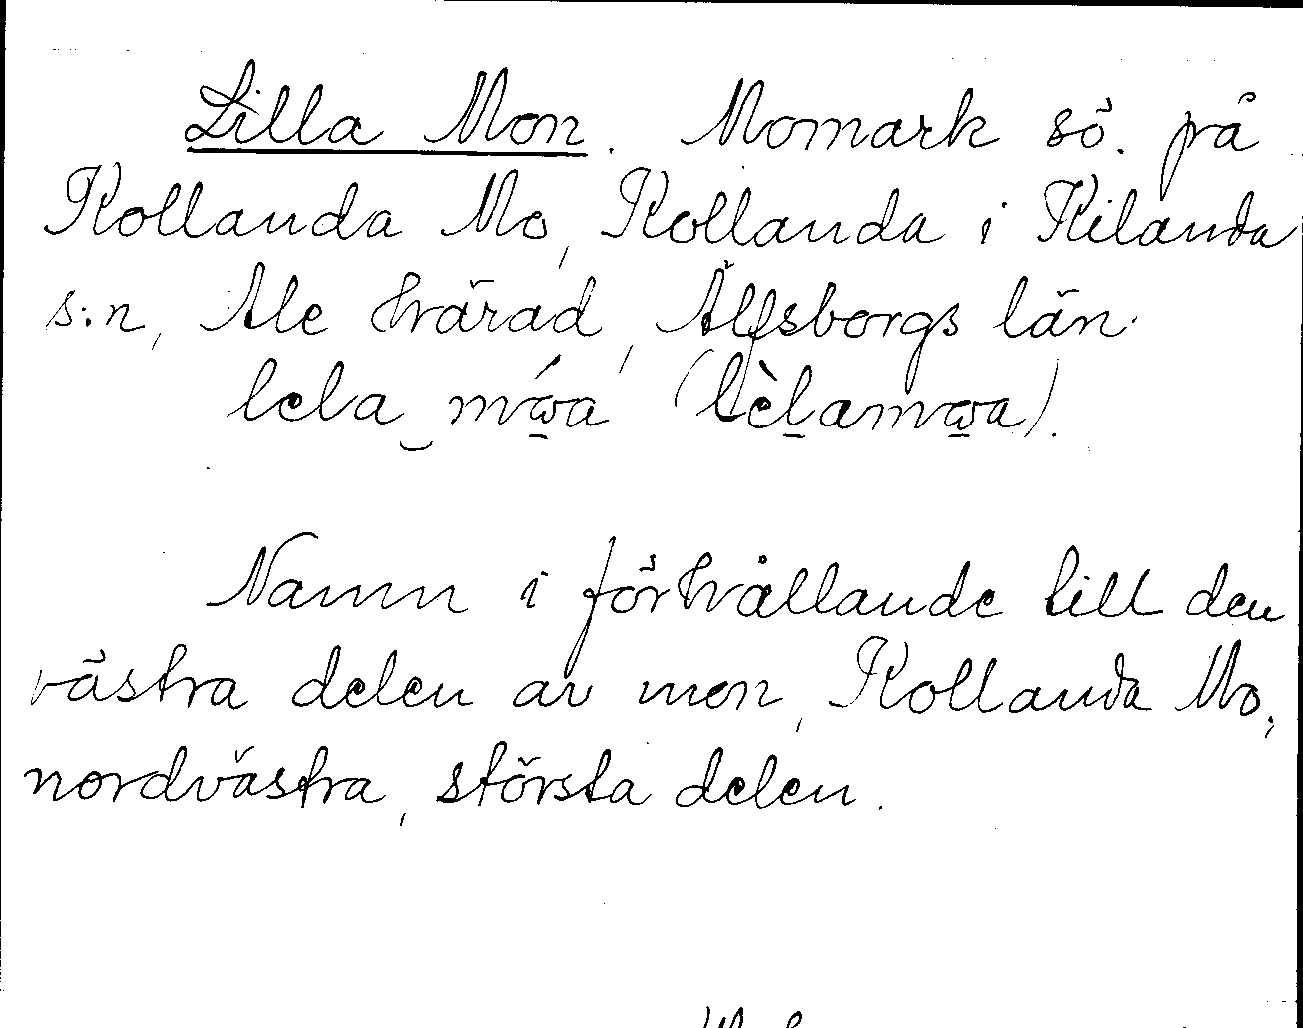 Lilla Mon. Momark sö. på
Kollanda Mo, Kollanda i Kilanda
s:n, Ale härad, Älfsborgs län.
lela mɷ́a (lèlamɷa).
Namn i förhållande till den
västra delen av mon, Kollanda Mo,
nordvästra, största delen.